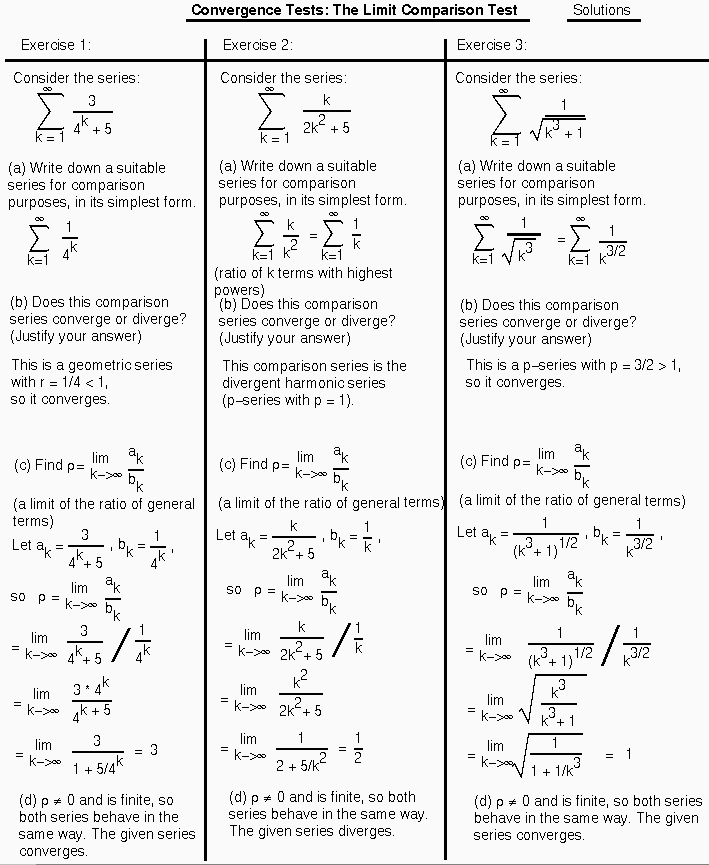 Convergence Tests: The Limit Comparison Test Solutions
Exercise 1:
Consider the series:
∑_{k = 1}^{∞} 3/(4^k + 5)
(a) Write down a suitable
series for comparison
purposes, in its simplest form.
∑_{k=1}^{∞} 1/4^k
(b) Does this comparison
series converge or diverge?
(Justify your answer)
This is a geometric series
with r = 1/4 < 1,
so it converges.
(c) Find ρ= lim_{k−>∞} a_k/b_k
(a limit of the ratio of general
terms)
Let a_k = 3/(4^k + 5) , b_k = 1/4^k ,
so ρ = lim_{k−>∞} a_k/b_k
= lim_{k−>∞} 3/(4^k + 5) / 1/4^k
= lim_{k−>∞} (3 * 4^k)/(4^k + 5)
= lim_{k−>∞} 3/(1 + 5/4^k) = 3
(d) ρ ≠ 0 and is finite, so
both series behave in the
same way. The given series
converges.
Exercise 2:
Consider the series:
∑_{k = 1}^{∞} k/(2k^2 + 5)
(a) Write down a suitable
series for comparison
purposes, in its simplest form.
∑_{k=1}^{∞} k/k^2 = ∑_{k=1}^{∞} 1/k
(ratio of k terms with highest
powers)
(b) Does this comparison
series converge or diverge?
(Justify your answer)
This comparison series is the
divergent harmonic series
(p−series with p = 1).
(c) Find ρ= lim_{k−>∞} a_k/b_k
(a limit of the ratio of general terms)
Let a_k = k/(2k^2 + 5) , b_k = 1/k ,
so ρ = lim_{k−>∞} a_k/b_k
= lim_{k−>∞} k/(2k^2 + 5) / 1/k
= lim_{k−>∞} k^2/(2k^2 + 5)
= lim_{k−>∞} 1/(2 + 5/k^2) = 1/2
(d) ρ ≠ 0 and is finite, so both
series behave in the same way.
The given series diverges.
Exercise 3:
Consider the series:
∑_{k = 1}^{∞} 1/√(k^3 + 1)
(a) Write down a suitable
series for comparison
purposes, in its simplest form.
∑_{k=1}^{∞} 1/√(k^3) = ∑_{k=1}^{∞} 1/k^{3/2}
(b) Does this comparison
series converge or diverge?
(Justify your answer)
This is a p−series with p = 3/2 > 1,
so it converges.
(c) Find ρ= lim_{k−>∞} a_k/b_k
(a limit of the ratio of general terms)
Let a_k = 1/(k^3 + 1)^{1/2} , b_k = 1/k^{3/2} ,
so ρ = lim_{k−>∞} a_k/b_k
= lim_{k−>∞} 1/(k^3 + 1)^{1/2} / 1/k^{3/2}
= lim_{k−>∞} √(k^3/(k^3 + 1))
= lim_{k−>∞} √(1/(1 + 1/k^3)) = 1
(d) ρ ≠ 0 and is finite, so both series
behave in the same way. The given
series converges.